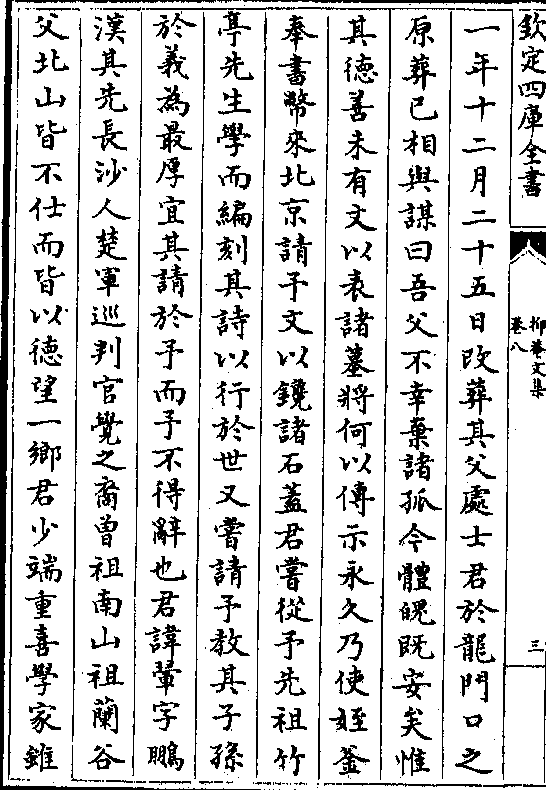 欽定四庫全書
抑菴文集
卷八
三
一年十二月二十五日改葬其父處士君於龍門口之
原葬已相與謀曰吾父不幸棄諸孤今體魄既安矣惟
其德善未有文以表諸墓將何以傳示永久乃使姪釜
奉書幣來北京請予文以鑱諸石蓋君嘗從予先祖竹
亭先生學而編刻其詩以行於世又嘗請予教其子孫
於義為最厚宜其請於予而予不得辭也君諱翬字鵬
漢其先長沙人楚軍巡判官覺之裔曾祖南山祖蘭谷
父北山皆不仕而皆以德望一鄉君少端重喜學家雖